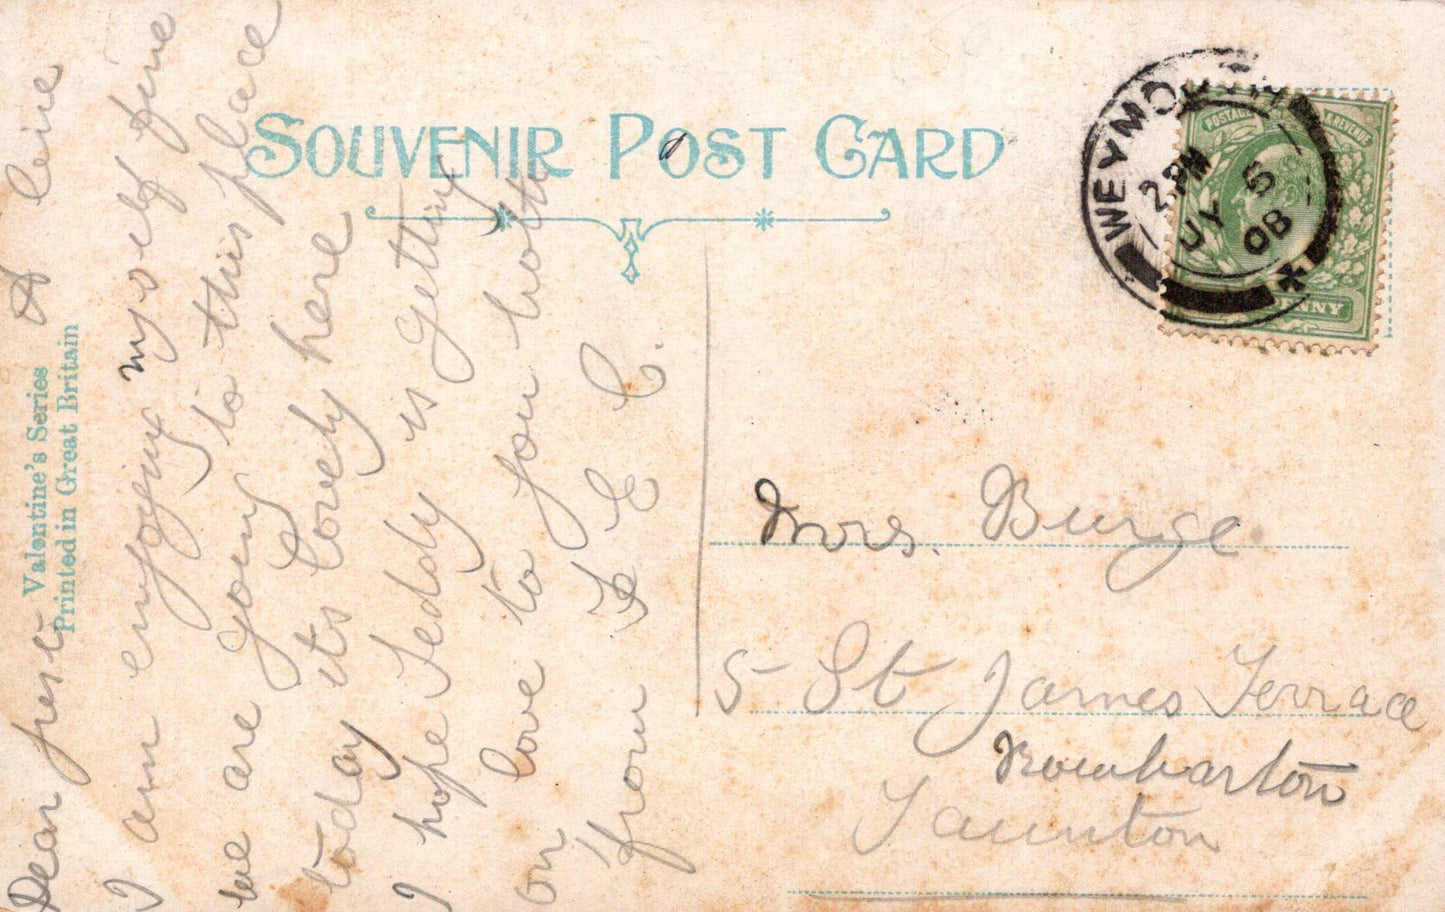 SOUVENIR POST CARD
Valentine's Series
Printed in Great Britain
WEYMOUTH
2. PM
JY 5
08
POSTAGE REVENUE
PENNY
Dear A line
I am enjoying myself fine
we are going to this place
today its lovely here
I hope Teddy is getting
on love to you both
from E C.
Mrs. Burge.
5 St James Terrace
Rowbarton
Taunton